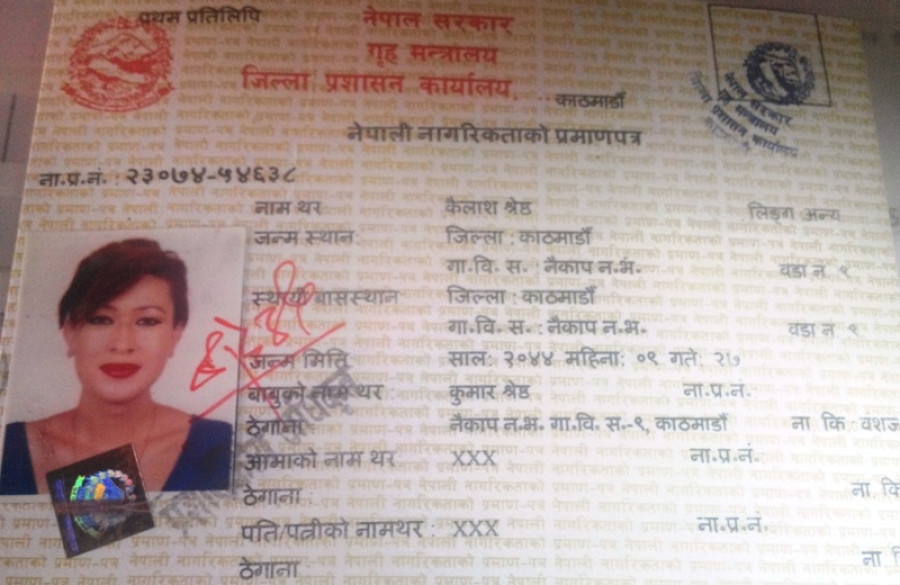 प्रथम प्रतिलिपि
नेपाल सरकार
गृह मन्त्रालय
जिल्ला प्रशासन कार्यालय, ...काठमाडौं
नेपाली नागरिकताको प्रमाणपत्र
ना.प्र.नं. : २३०७४-५४६३८
नाम थर कैलाश श्रेष्ठ लिङ्ग अन्य
जन्म स्थान: जिल्ला : काठमाडौं
गा.वि. स. : नैकाप न.भं. वडा नं ९
स्थायी बासस्थान जिल्ला : काठमाडौं
गा.वि. स. : नैकाप न.भ. वडा नं ९
जन्म मिति साल: २०४४ महिना: ०९ गते: २७
बाबुको नाम थर : कुमार श्रेष्ठ ना.प्र.नं.
ठेगाना नैकाप न.भ. गा.वि. स.-९, काठमाडौं ना कि : वंशज
आमाको नाम थर XXX ना.प्र.नं.
ठेगाना : ना कि
पति/पत्नीको नामथर : XXX ना.प्र.नं.
ठेगाना ना